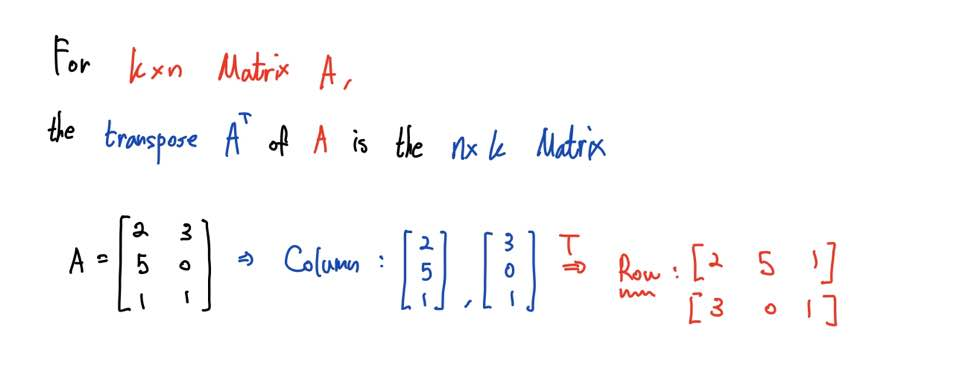 For k×n Matrix A,
the transpose Aᵀ of A is the n×k Matrix
A = [2 3; 5 0; 1 1] ⇒ Column : [2; 5; 1], [3; 0; 1] T⇒ Row : [2 5 1]
[3 0 1]